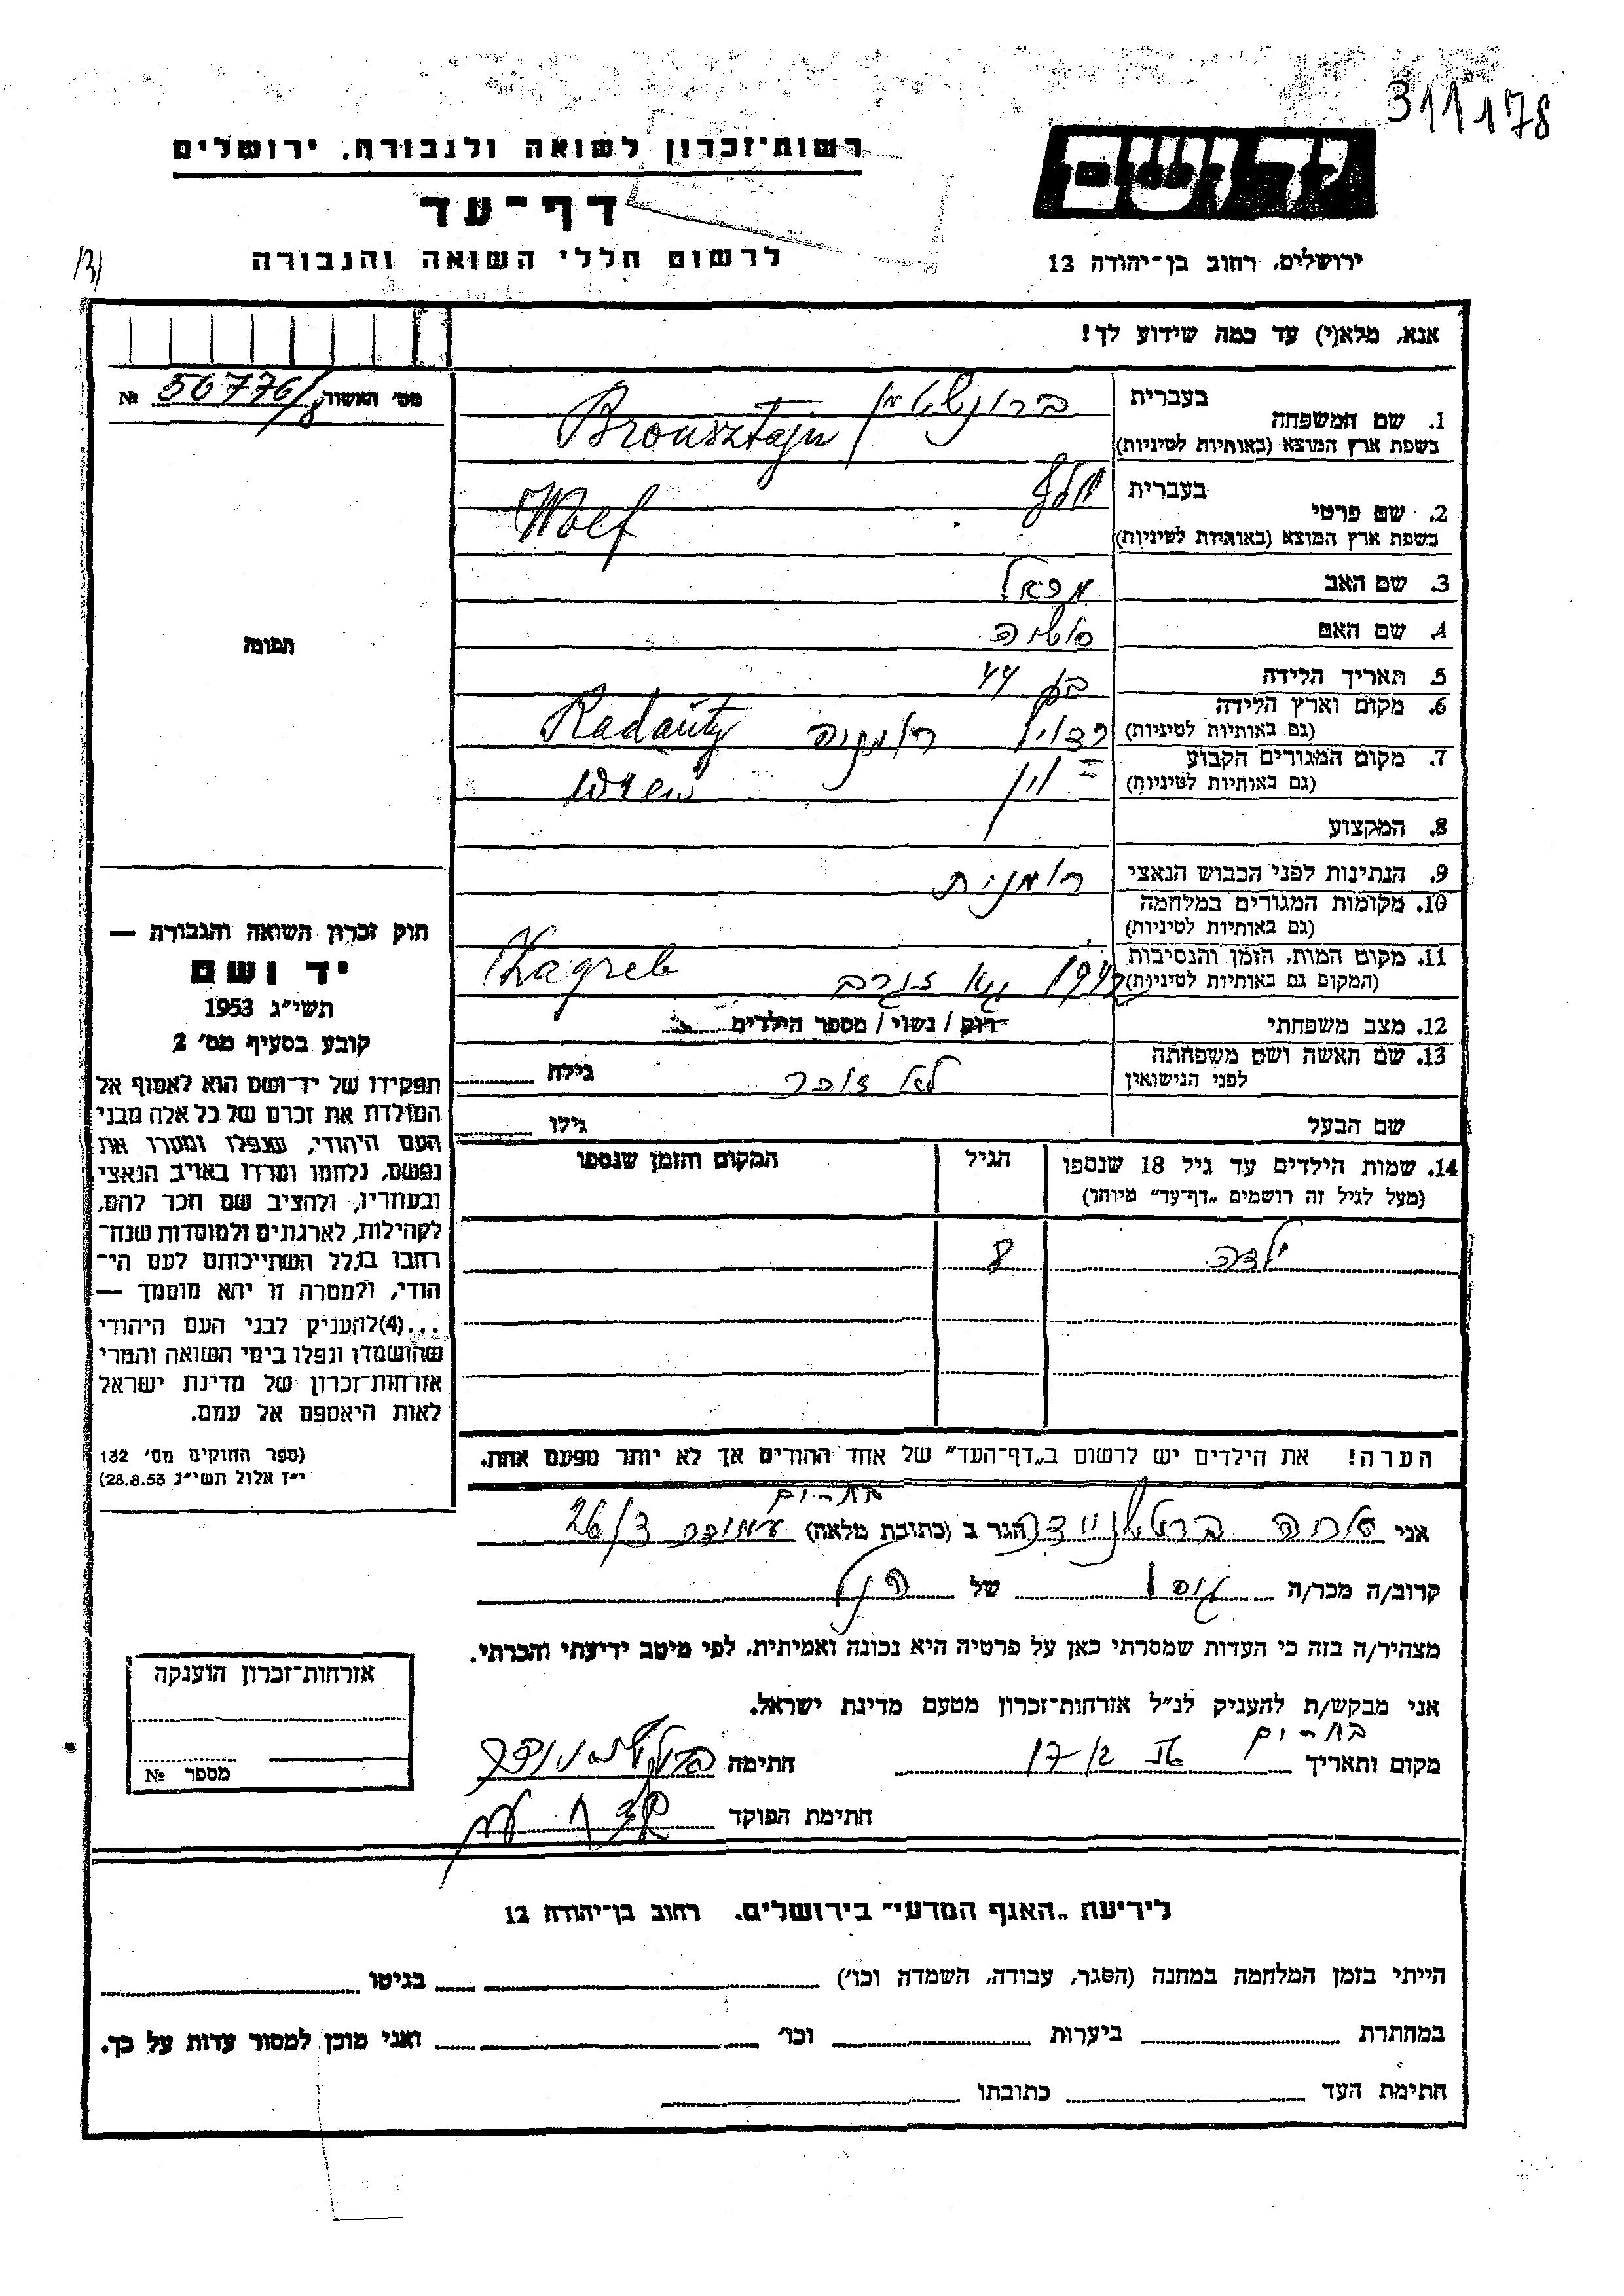 311178
רשות־זכרון לשואה ולגבורה, ירושלים
דף־עד
לרשום חללי השואה והגבורה
יד ושם
ירושלים, רחוב בן־יהודה 12
אנא, מלא(י) עד כמה שידוע לך!
מס׳ האשור 56776/8 №
1. שם המשפחה
בעברית ברונשטיין
בשפת ארץ המוצא (באותיות לטיניות) Bronsztajn
2. שם פרטי
בעברית וולף
בשפת ארץ המוצא (באותיות לטיניות) Wolf
3. שם האב
4. שם האם
5. תאריך הלידה בן 44
6. מקום וארץ הלידה
(גם באותיות לטיניות) רומניה Radautz
7. מקום המגורים הקבוע
(גם באותיות לטיניות) וין
8. המקצוע
9. הנתינות לפני הכבוש הנאצי רומנית
10. מקומות המגורים במלחמה
(גם באותיות לטיניות)
11. מקום המות, הזמן והנסיבות
(המקום גם באותיות לטיניות) זגרב Zagreb
12. מצב משפחתי רוק / נשוי / מספר הילדים
13. שם האשה ושם משפחתה
לפני הנישואין לא זוכר גילה
שם הבעל גילו
14. שמות הילדים עד גיל 18 שנספו הגיל המקום והזמן שנספו
(מעל לגיל זה רושמים „דף־עד” מיוחד)
ילדה 8
הערה! את הילדים יש לרשום ב„דף־העד” של אחד ההורים אך לא יותר מפעם אחת.
תמונה
חוק זכרון השואה והגבורה —
יד ושם
תשי״ג 1953
קובע בסעיף מס׳ 2
תפקידו של יד־ושם הוא לאסוף אל
המולדת את זכרם של כל אלה מבני
העם היהודי, שנפלו ומסרו את
נפשם, נלחמו ומרדו באויב הנאצי
ובעוזריו, ולהציב שם וזכר להם,
לקהילות, לארגונים ולמוסדות שנח־
רבו בגלל השתייכותם לעם הי־
הודי, ולמטרה זו יהא מוסמך —
...(4) להעניק לבני העם היהודי
שהושמדו ונפלו בימי השואה והמרי
אזרחות־זכרון של מדינת ישראל
לאות היאספם אל עמם.
(ספר החוקים מס׳ 132
י״ז אלול תשי״ג 28.8.53)
בת-ים
אני שרה הגר ב (כתובת מלאה) 26/3
קרוב/ה מכר/ה של
מצהיר/ה בזה כי העדות שמסרתי כאן על פרטיה היא נכונה ואמיתית, לפי מיטב ידיעתי והכרתי.
אני מבקש/ת להעניק לנ״ל אזרחות־זכרון מטעם מדינת ישראל.
בת-ים
מקום ותאריך חתימה
חתימת הפוקד
אזרחות־זכרון הוענקה
מספר №
לידיעת „האגף המדעי” בירושלים, רחוב בן־יהודה 12
הייתי בזמן המלחמה במחנה (הסגר, עבודה, השמדה וכו׳) בגיטו
במחתרת ביערות וכו׳ ואני מוכן למסור עדות על כך.
חתימת העד כתובתו